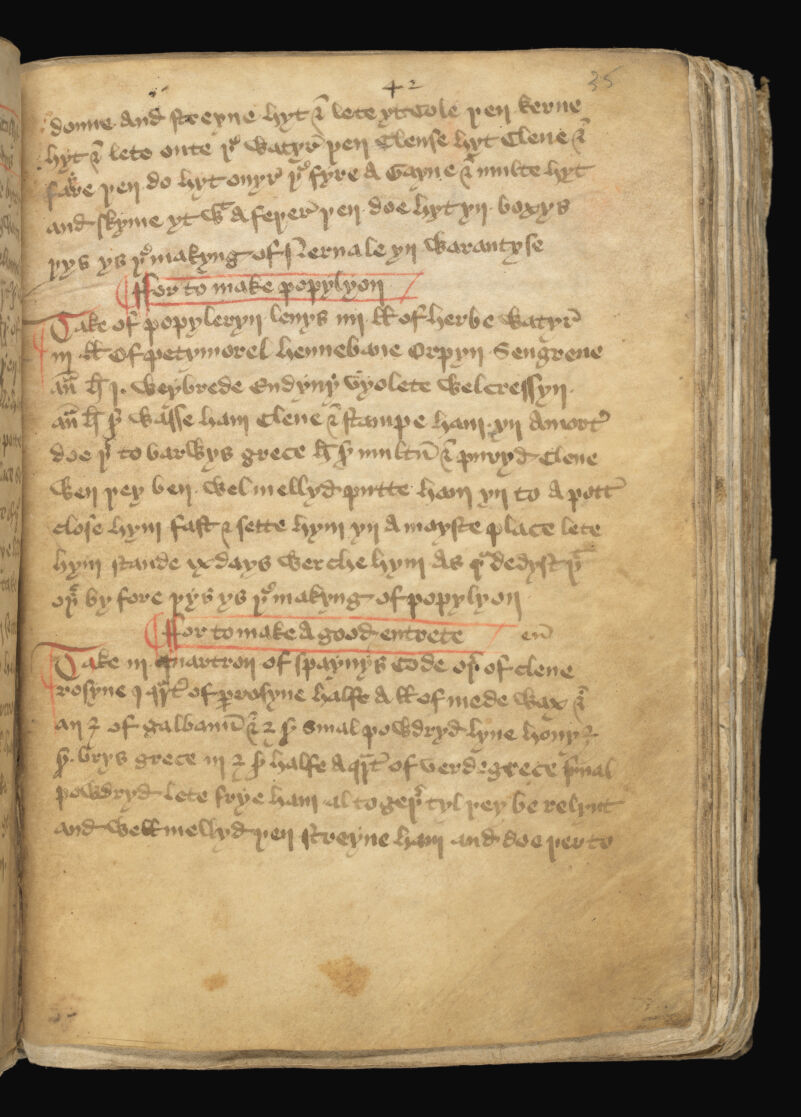 42 35
donne and streyne hyt & lete yt cole þen kerne
hyt & lete oute þe watyr þen clense hyt clene &
þen do hyt ouyr þe fyre a gayne & multe hyt
and skyme yt wt a feþer þen doe hyt yn boxys
þys ys þe makyng of vernale yn warantyse
ffor to make popylyon
Take of popyleryn levys iiij ll of herbe watyr
iij ll of petymorel hennebane orpyn Sengrene
an̄ ħ j. weybrede endyny vyolete welcressyn
an̄ ħ wasse ham clene & stampe ham yn a morter
doe þer to barwys grece multū & puryd clene
wen þey ben wel mellyd putte ham yn to a pott
close hym fast & sette hym yn a moyste place lete
hym stande ix days werche hym as þu dedyst þe
oþer by fore þys ys þe makyng of popylyon
ffor to make A good entrete
Take iij quartron of spaynys code oþer of clene
rosyne j qrt of perosyne halfe a ll of mede wax &
an ℥ of galbanū & ℥ smal powdryd lyne hony ℥
grece iij ℥ halfe a qrt of verdegrece smal
powdryd lete frye ham al togeþer tyl þey be relent
and well mellyd þen streyne ham and doe þer to